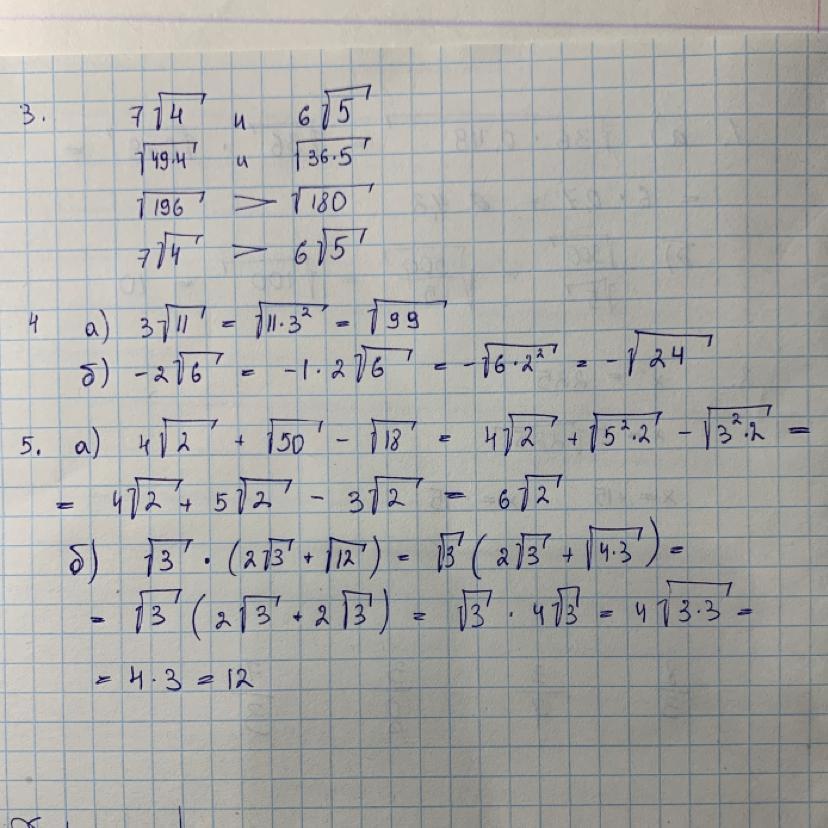 3. 7√4 и 6√5
√49·4 и √36·5
√196 > √180
7√4 > 6√5
4 а) 3√11 = √11·3² = √99
б) -2√6 = -1·2√6 = -√6·2² = -√24
5. а) 4√2 + √50 - √18 = 4√2 + √5²·2 - √3²·2 =
= 4√2 + 5√2 - 3√2 = 6√2
б) √3 · (2√3 + √12) = √3 (2√3 + √4·3) =
= √3 (2√3 + 2√3) = √3 · 4√3 = 4√3·3 =
= 4·3 = 12